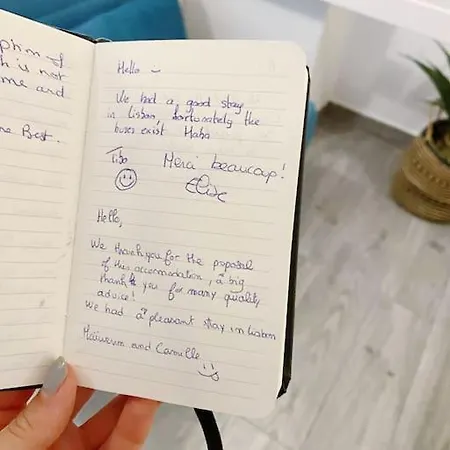 is not
me and
Best.
Hello ~
We had a good stay
in Lisbon, fortunately the
buses exist Haha
Tibo Merci beaucoup!
Hello,
We thank you for the proposal
of this accomodation, a big
thank you for many quality
advice!
We had a pleasant stay in Lisbon
and Camille